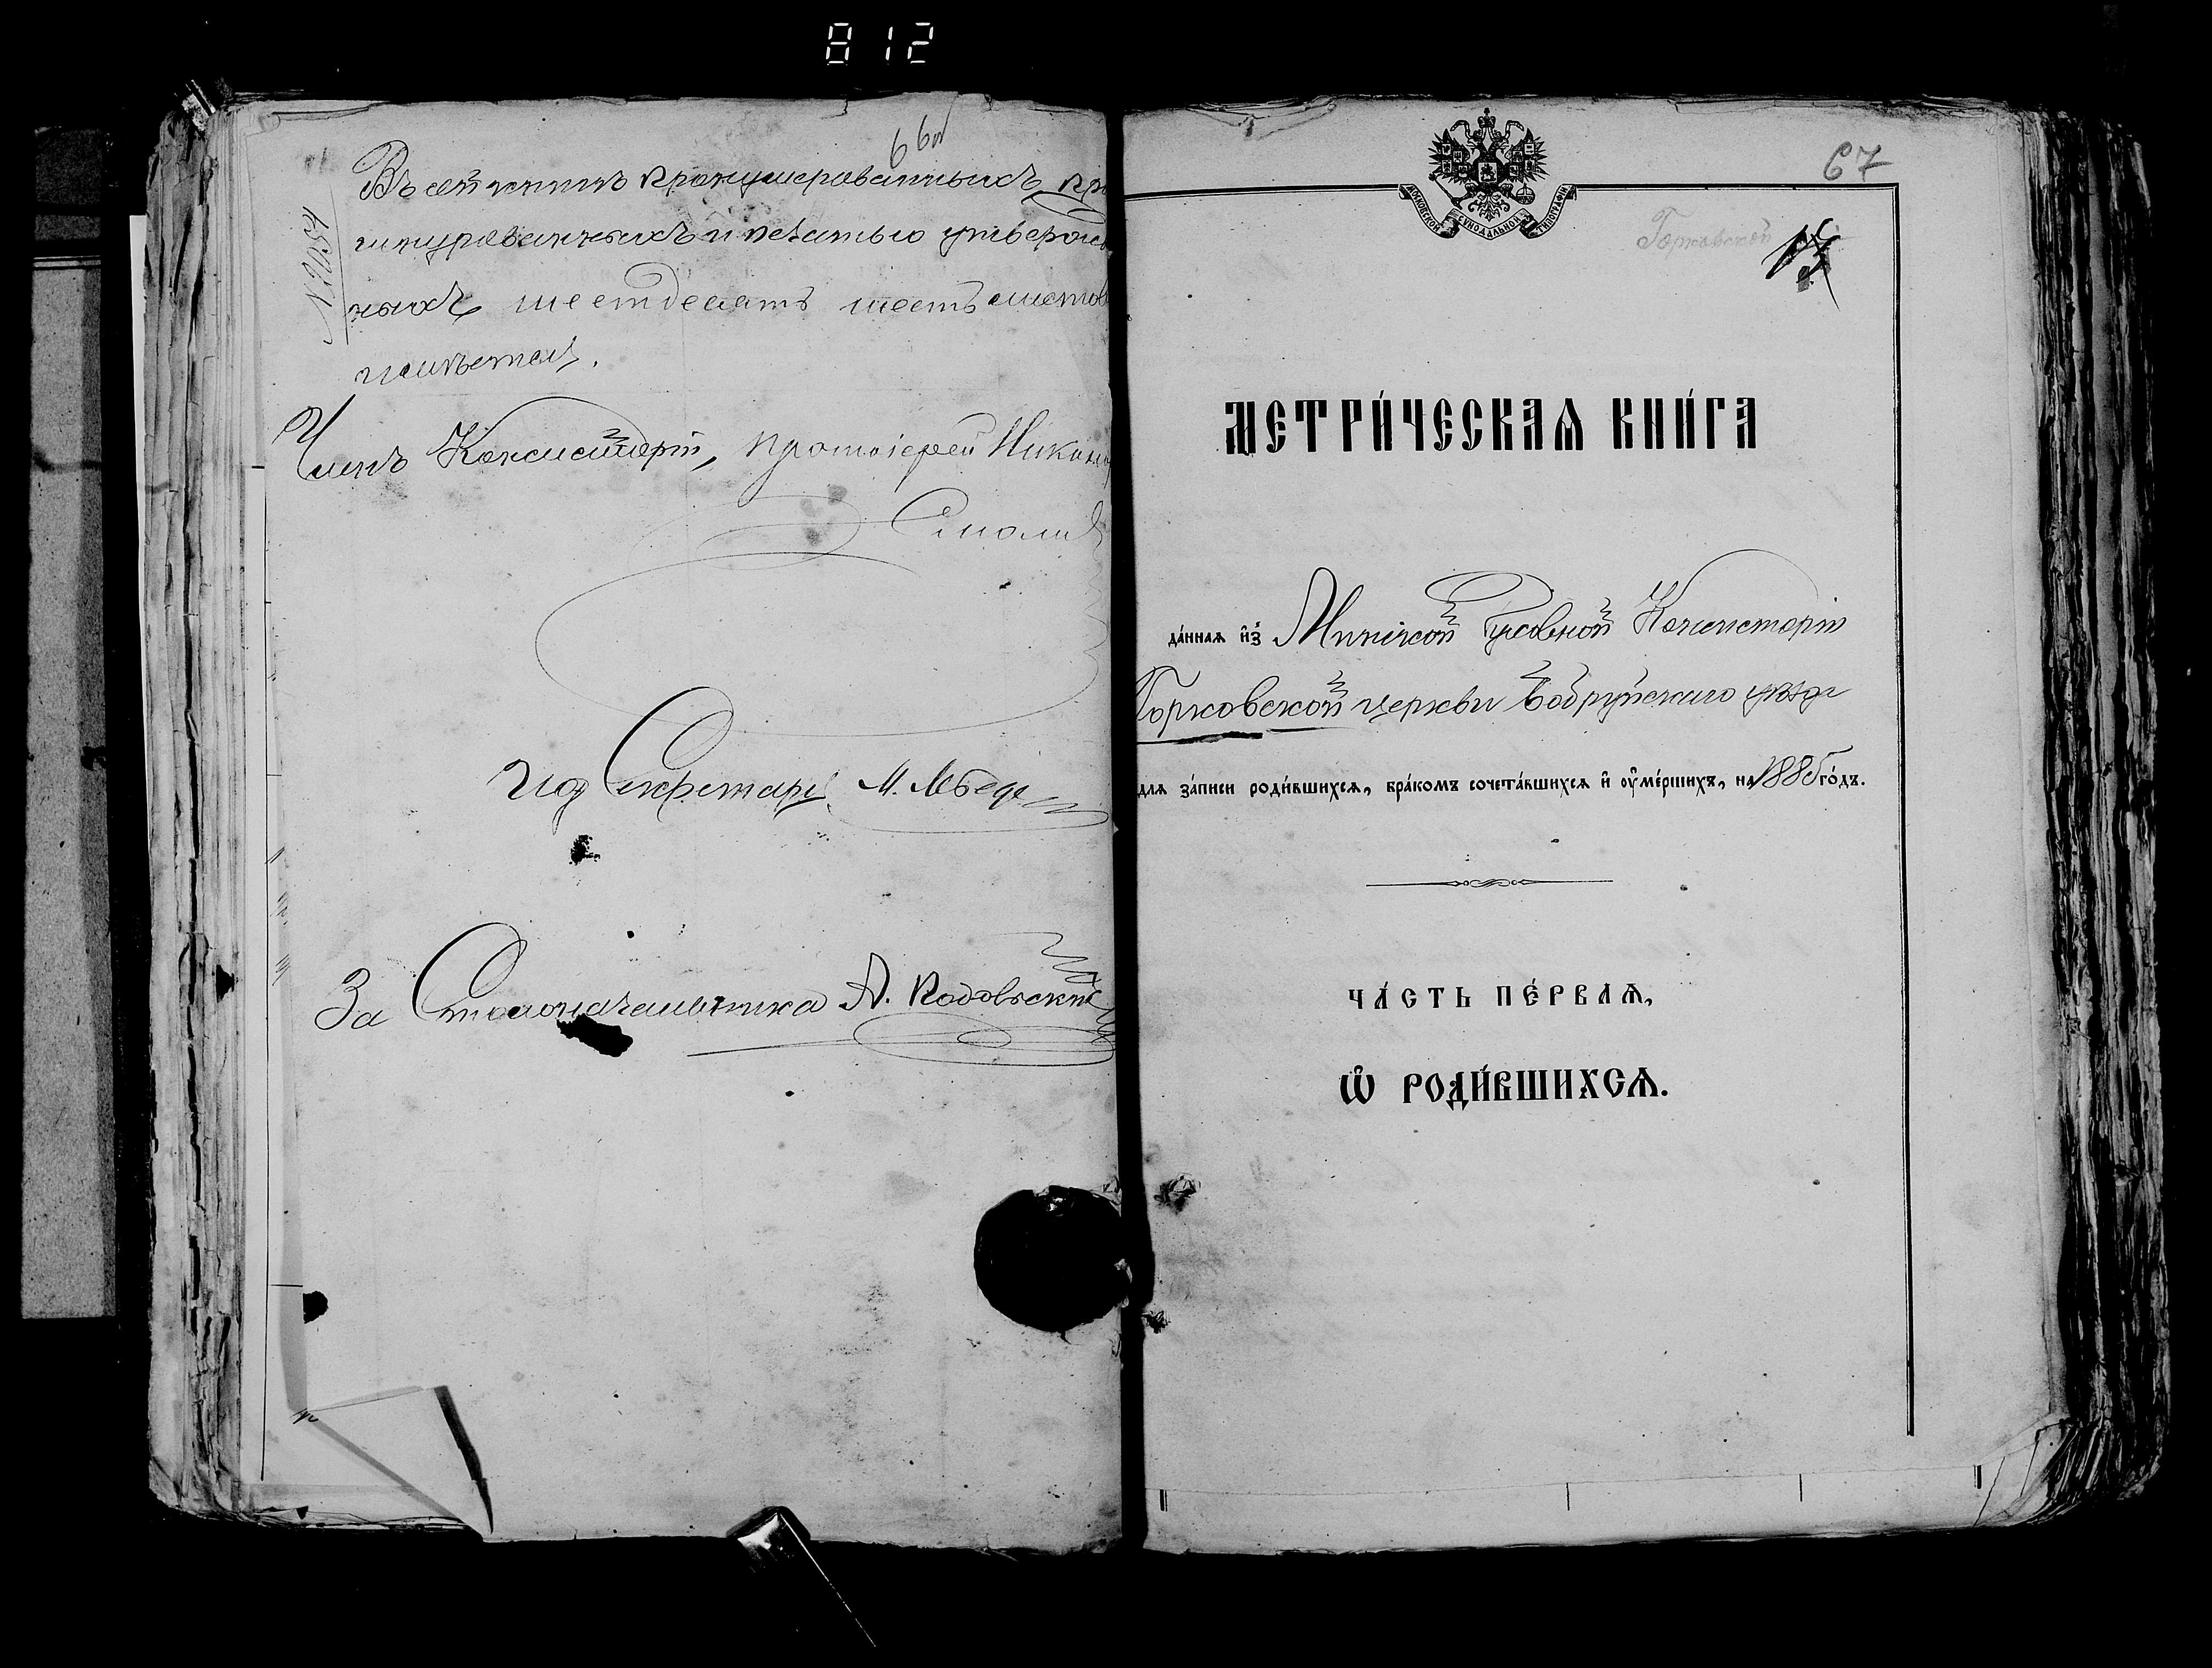 812
66об
Въ сей книгѣ пронумерованныхъ, про
шнурованныхъ и печатью утвержден
ныхъ шестдесятъ шесть листовъ
имѣется.
Членъ Консисторіи, протоіерей Никано
Смоли
И. д. Секретаря
За Столоначальника А.
67
МОСКОВСКОЙ СѴНОДАЛЬНОЙ ТИПОГРАФІИ
Горковской
МЕТРИ́ЧЕСКАѦ КНИ́ГА
да́ннаѧ и҆з̾ Минской Духовной Консисторіи
Горковской церкви Бобруйскаго уѣзда
для за́писи роди́вшихсѧ, бра́комъ сочета́вшихсѧ и҆ ᲂу҆ме́ршихъ, на 1885 го́дъ.
ЧА́СТЬ ПЕ́РВАѦ,
Ѽ РОДИ́ВШИХСѦ.